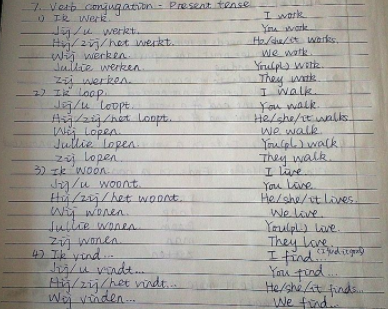 7. Verb conjugation - Present tense
1) Ik werk. I work.
Jij/u werkt. You work.
Hij/zij/het werkt. He/she/it works.
Wij werken. We work.
Jullie werken. You(pl.) work
Zij werken. They work.
2) Ik loop. I walk.
Jij/u loopt. You walk.
Hij/zij/het loopt. He/she/it walks.
Wij lopen. We walk.
Jullie lopen. You(pl.) walk
Zij lopen. They walk.
3) Ik woon. I live.
Jij/u woont. You live.
Hij/zij/het woont. He/she/it lives.
Wij wonen. We live.
Jullie wonen. You(pl.) live.
Zij wonen. They live.
4) Ik vind... I find...
Jij/u vindt... You find...
Hij/zij/het vindt... He/she/it finds...
Wij vinden... We find...